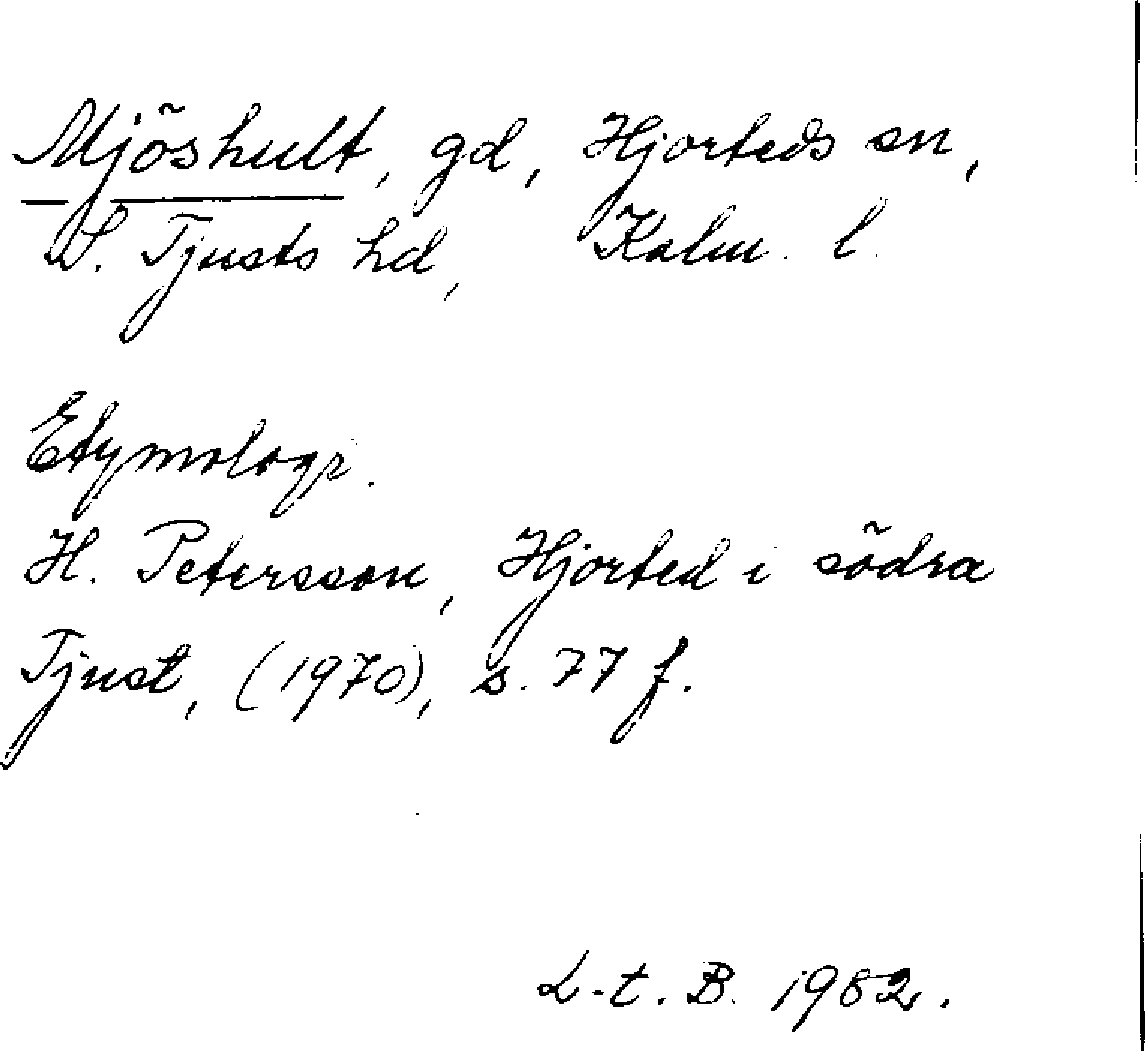 Mjöshult, gd, Hjorteds sn,
S. Tjusts hd, Kalm. l.
Etymologi.
H. Petersson, Hjorted i södra
Tjust, (1970), s. 77 f.
L-t. B. 1982.